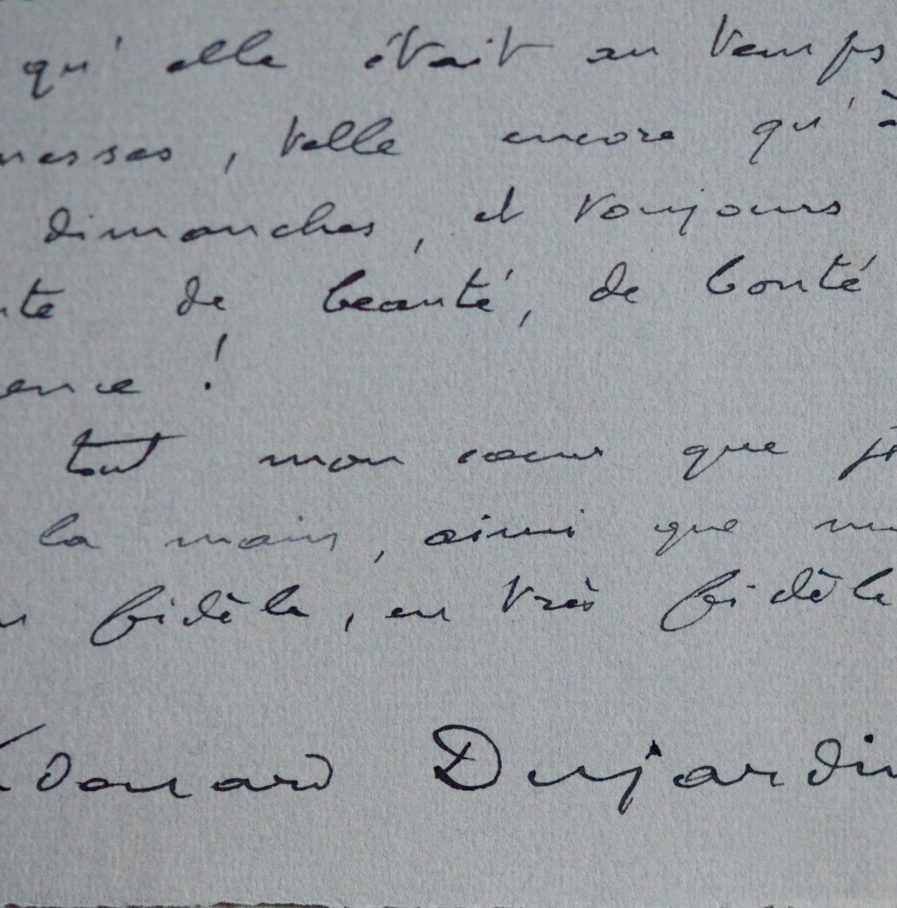 qu'elle était au temps
nesses, telle encore qu'à
dimanches, et toujours
nte de beauté, de bonté
ence !
tout mon cœur que je
la main, ainsi que
fidèle, en très fidèle
Edouard Dujardin